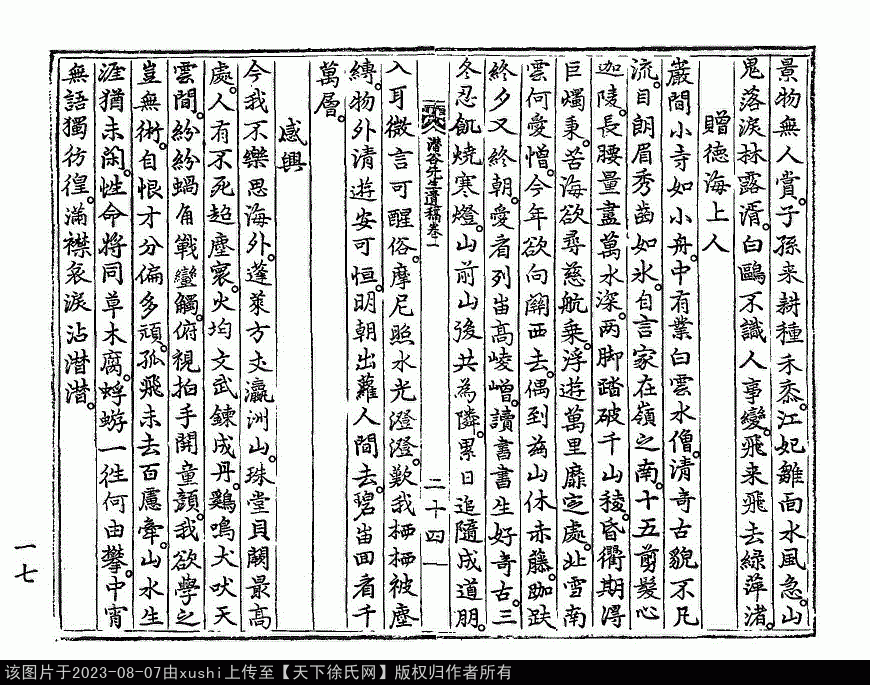 景物無人賞。子孫来耕種禾黍。江妃皺面水風急。山
鬼落淚林露湑。白鷗不識人事變。飛来飛去綠萍渚。
贈德海上人
巖間小寺如小舟。中有業白雲水僧。清奇古貌不凡
流。目朗眉秀齒如氷。自言家在嶺之南。十五剪髮心
迦陵。長腰量盡萬水深。两脚踏破千山稜。昏衢期得
巨燭秉。苦海欲尋慈航乗。浮遊萬里靡定處。北雪南
雲何愛憎。今年欲向關西去。偶到茲山休赤藤。跏趺
終夕又終朝。愛看列峀高崚嶒。讀書書生好奇古。三
冬忍飢焼寒燈。山前山後共為隣。累日追隨成道朋。
潛谷先生遺稿卷一
二十四
入耳微言可醒俗。摩尼照水光澄澄。歎我栖栖被塵
縛。物外清遊安可恒。明朝出蘿人間去。碧峀回看千
萬層。
感興
今我不樂思海外。蓬萊方丈瀛洲山。珠堂貝闕最高
處。人有不死超塵寰。火均文武鍊成丹。鷄鳴犬吠天
雲間。紛紛蝸角戰蠻觸。俯視拍手開童顔。我欲學之
豈無術。自恨才分偏多頑。孤飛未去百慮牽。山水生
涯猶未閑。性命将同草木腐。蜉蝣一往何由攀。中宵
無語獨彷徨。滿襟哀淚沾潸潸。
一七
该图片于2023-08-07由xushi上传至【天下徐氏网】版权归作者所有